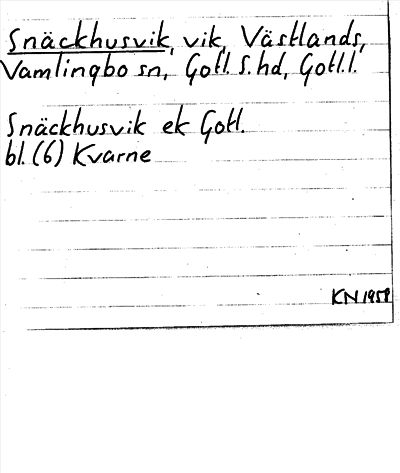 Snäckhusvik, vik, Västlands,
Vamlingbo sn, Gotl. S. hd, Gotl. l.
Snäckhusvik ek Gotl.
bl. (6) Kvarne
KN 1959